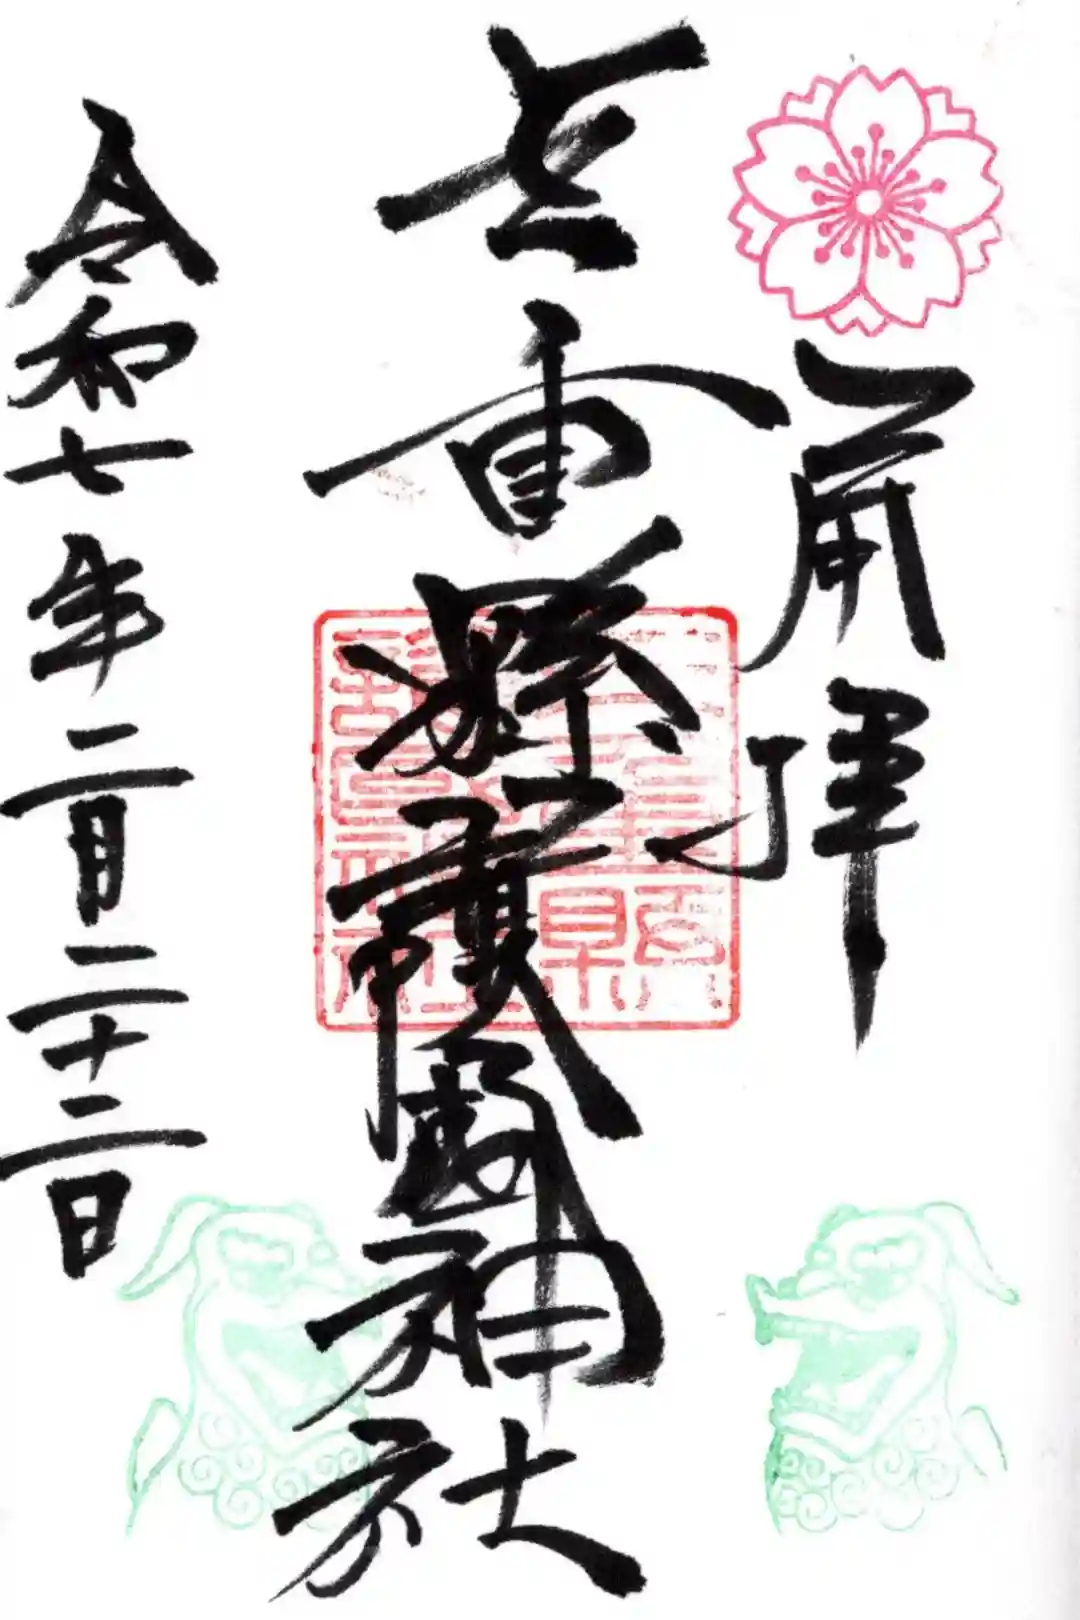 拝
三重縣護國神社
三重縣
護國神社
令和七年二月二十二日